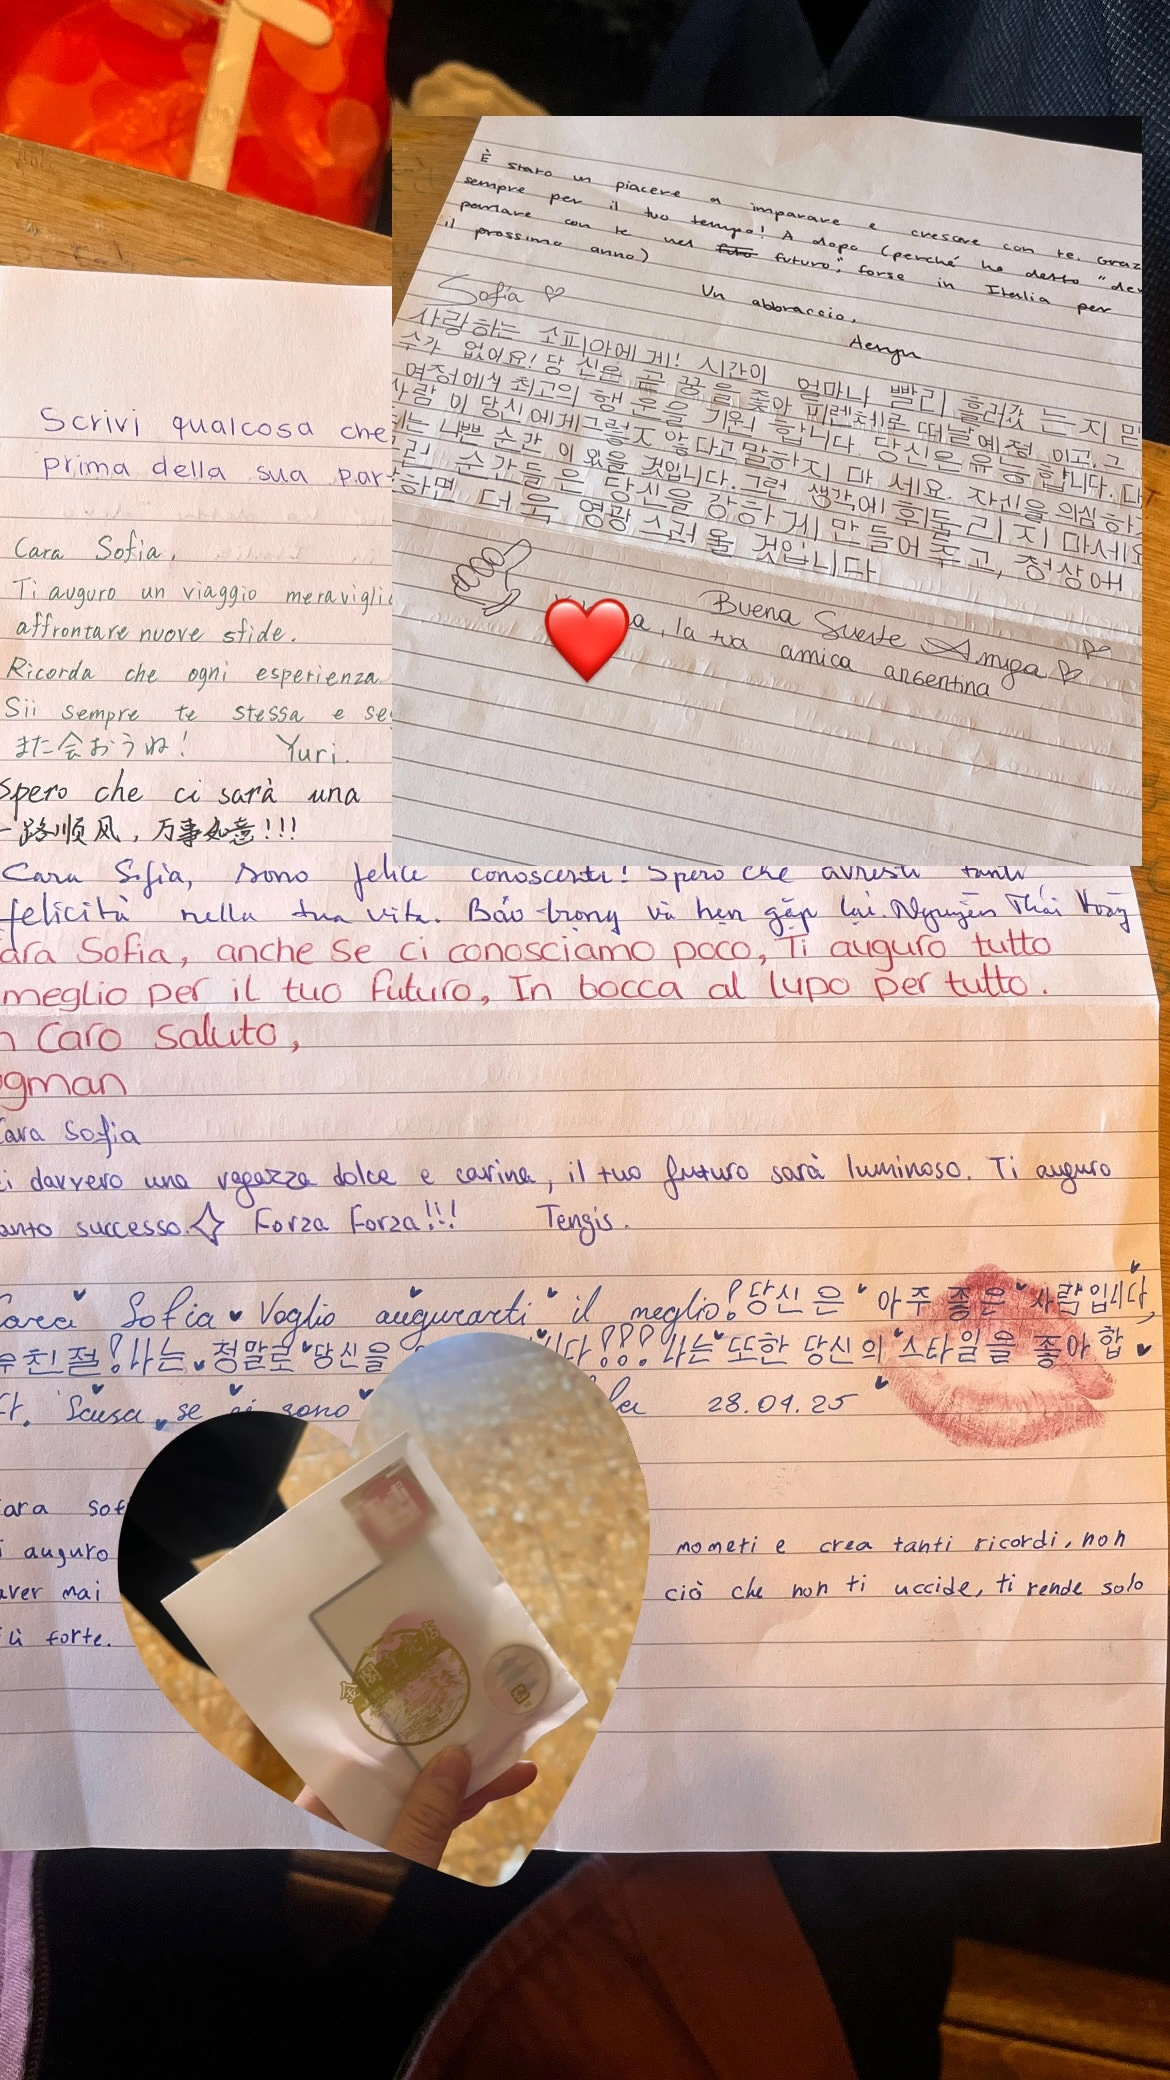 È stato un piacere a imparare e crescere con te. Graz
sempre per il tuo tempo! A dopo (perché ho detto "dev
parlare con te nel futuro", forse in Italia per
il prossimo anno)
Un abbraccio,
Aeryn
Sofia ♡
사랑하는 소피아에게! 시간이 얼마나 빨리 흘러갔는지 믿
수가 없어요! 당신은 곧 꿈을 좇아 피렌체로 떠날 예정이고, 그
여정에서 최고의 행운을 기원합니다. 당신은 유능합니다. 다
사람이 당신에게 그렇지 않다고 말하지 마세요. 자신을 의심하
는 나쁜 순간이 있을 것입니다. 그런 생각에 휘둘리지 마세요
런 순간들은 당신을 강하게 만들어 주고, 정상에
하면 더욱 영광스러울 것입니다
Buena Suerte Amiga ♡
a, la tua amica argentina
Scrivi qualcosa che
prima della sua par
Cara Sofia,
Ti auguro un viaggio meravigli
affrontare nuove sfide.
Ricorda che ogni esperienza
Sii sempre te stessa e se
また会おうね! Yuri.
Spero che ci sarà una
一路顺风,万事如意!!!
Cara Sofia, sono felice conoscerti! Spero che avresti tanti
felicità nella tua vita. Bảo trọng và hẹn gặp lại. Nguyễn Thái Hoàng
ara Sofia, anche se ci conosciamo poco, Ti auguro tutto
meglio per il tuo futuro, In bocca al lupo per tutto.
n Caro saluto,
gman
Cara Sofia
ei davvero una ragazza dolce e carina, il tuo futuro sarà luminoso. Ti auguro
anto successo. Forza Forza!!! Tengis.
Cara Sofia Voglio augurarti il meglio! 당신은 아주 좋은 사람입니다,
친절! 나는 정말로 당신을 니다??? 나는 또한 당신의 스타일을 좋아합
다. Scusa se ci sono 28.04.25
ara Sof
i auguro mometi e crea tanti ricordi, non
aver mai ciò che non ti uccide, ti rende solo
iù forte.